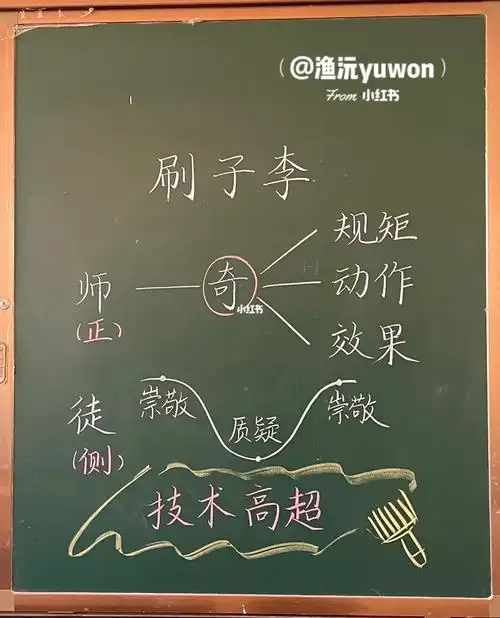 (@渔沅yuwon)
From 小红书
刷子李
师
(正)
奇
小红书
规矩
动作
效果
徒
(侧)
崇敬
质疑
崇敬
技术高超